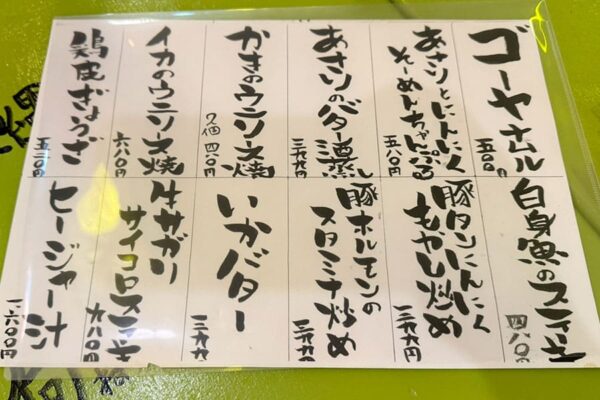 ゴーヤナムル
五〇〇円
あさりとにんにく
そーめんちゃんぷる
五八〇円
あさりのバター酒蒸し
三九九円
かきのウニソース焼
2個 四八〇円
イカのウニソース焼
六八〇円
鶏皮ぎょうざ
五三〇円
白身魚のスティーキ
四八〇円
豚タンにんにく
もやし炒め
三九九円
豚ホルモンの
スタミナ炒め
三九九円
いかバター
三九九
牛サガリ
サイコロスティーキ
九八〇円
ヒージャー汁
一六〇〇円